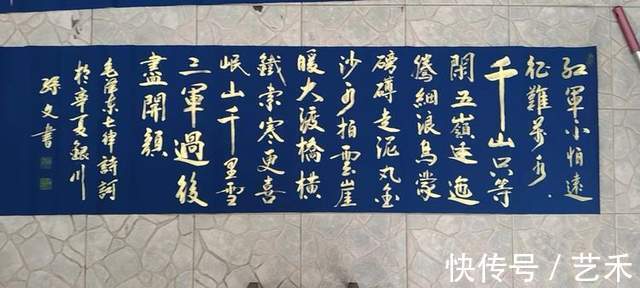 紅軍不怕遠
征難萬水
千山只等
閑五嶺逶迤
騰細浪烏蒙
磅礴走泥丸金
沙水拍雲崖
暖大渡橋橫
鐵索寒更喜
岷山千里雪
三軍過後
盡開顏
毛澤東七律詩詞
於辛夏銀川
文書
快传号/艺禾